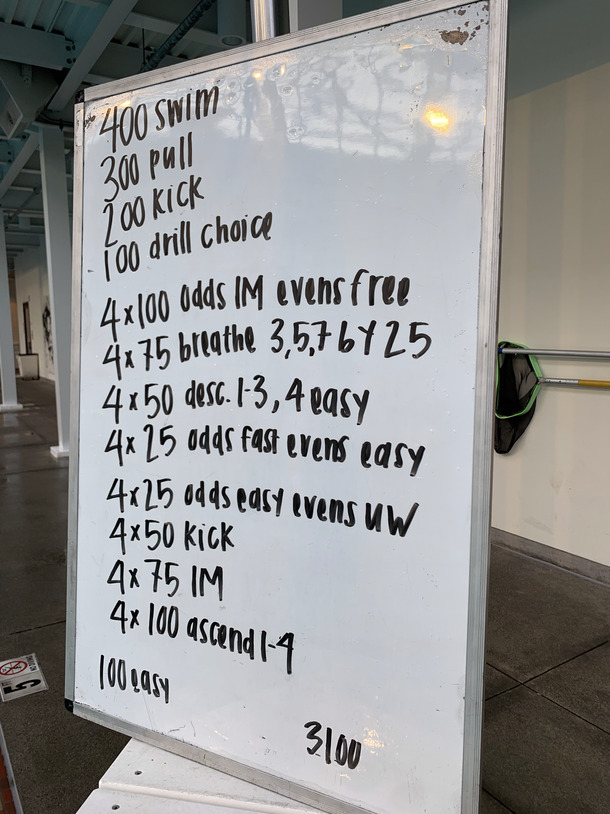 400 swim
300 pull
200 kick
100 drill choice
4x100 odds IM evens free
4x75 breathe 3,5,7 by 25
4x50 desc. 1-3, 4 easy
4x25 odds fast evens easy
4x25 odds easy evens UW
4x50 kick
4x75 IM
4x100 ascend 1-4
100 easy
3100
5